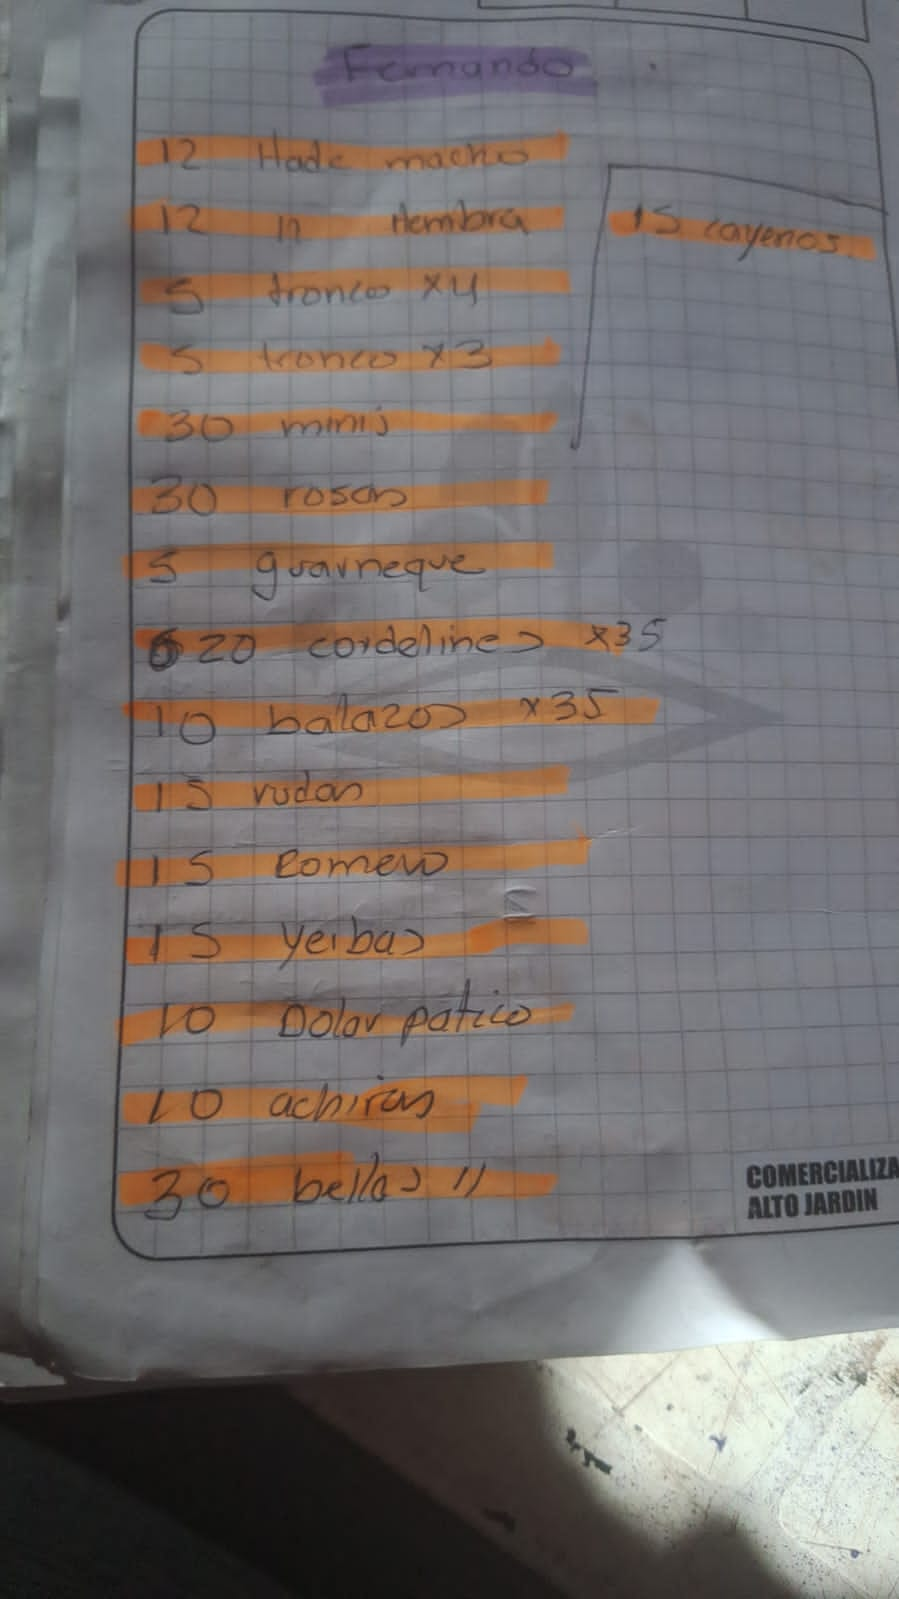 Fernando
12 Hade macho
12 11 Hembra
15 cayenos.
5 tronco x4
5 tronco x3
30 minis
30 rosas
5 guarneque
20 cordelines x35
10 balazos x35
15 rudas
15 Romero
15 yeibas
10 Dolar patico
10 achiras
30 bellas 11
COMERCIALIZA
ALTO JARDIN